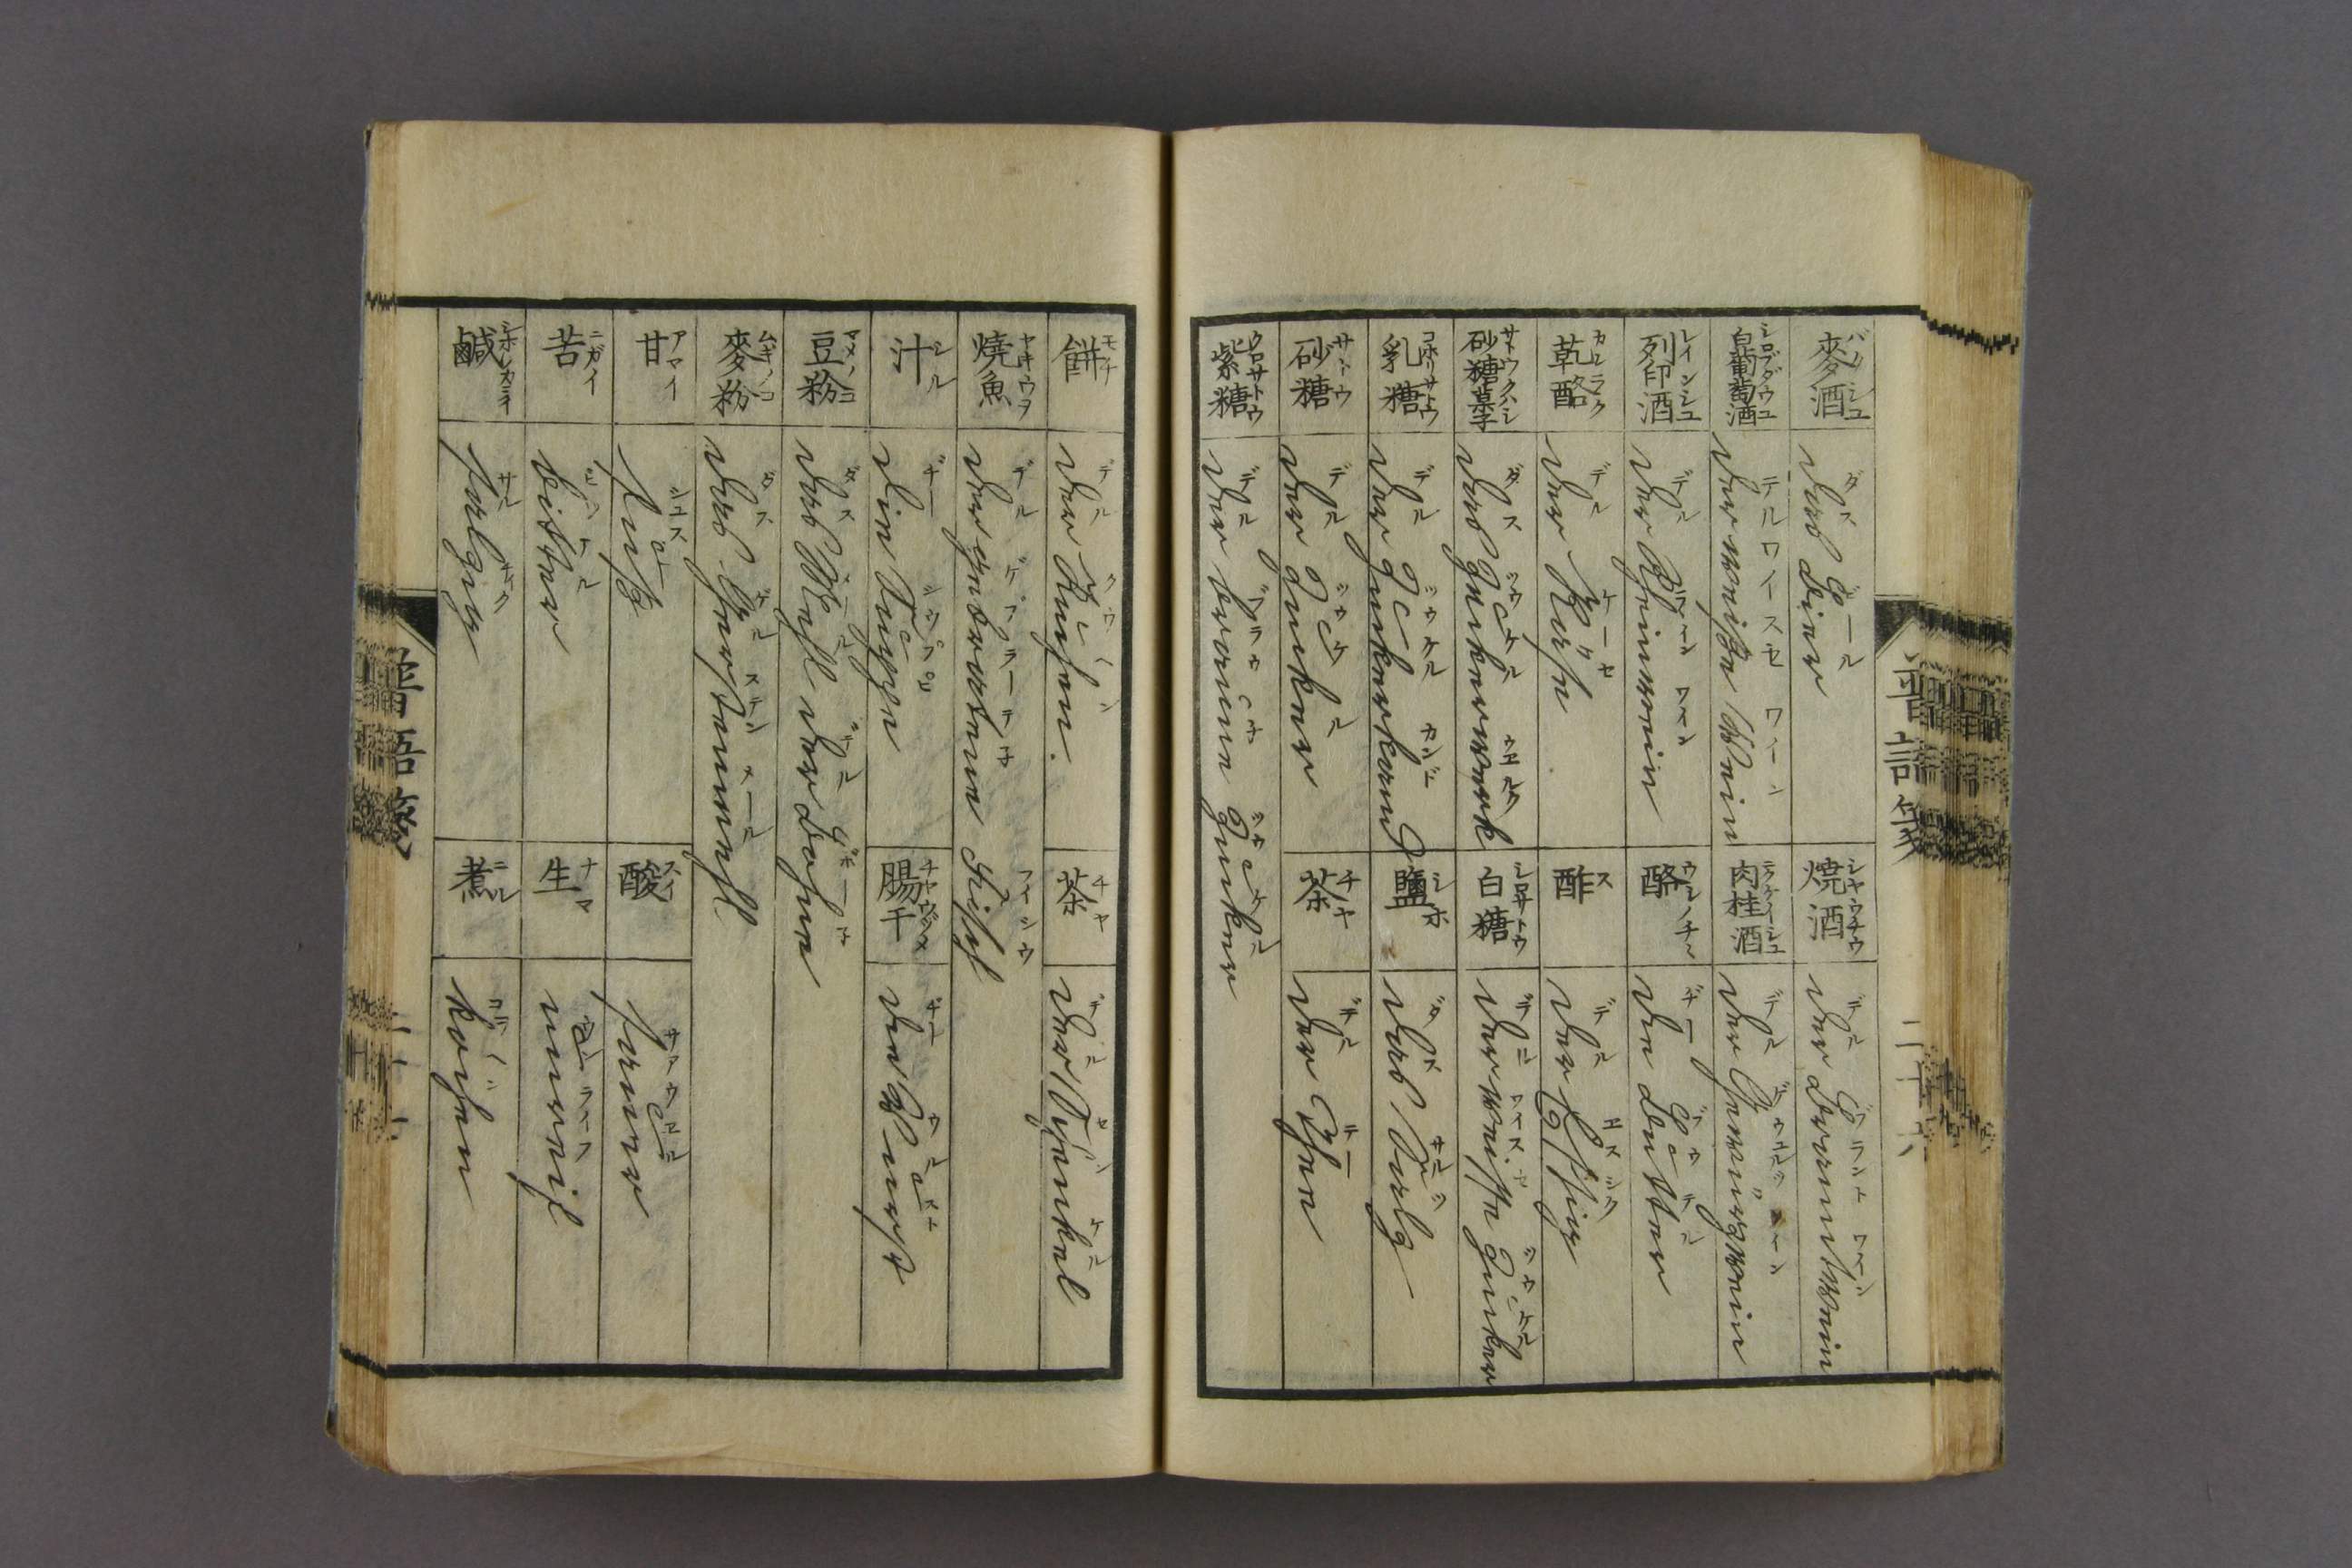 麥酒 バクシユ
das Bier ダス ビール
燒酒 シヤウチウ
der Branntwein デル ブラント ワイン
白葡萄酒
der weiße Wein デル ワイスセ ワイン
肉桂酒 ニツケイシユ
der Gewürzwein
列印酒 レインシユ
der Rheinwein デル ライン ワイン
酪 ウシノチヽ
die Butter ヂー ブウテル
乾酪 カンラク
der Käse デル ケーセ
酢 ス
der Essig デル エスシク
砂糖菓子 サトウクハシ
das Zuckerwerk ダス ツウケル ウエルク
白糖 シロサトウ
der weiße Zucker デル ワイスセ ツウケル
乳糖 コホリサトウ
der Zuckerkand デル ツウケル カンド
鹽 シホ
das Salz ダス サルツ
砂糖 サトウ
der Zucker デル ツウケル
茶 チヤ
der Thee デル テー
紫糖 クロサトウ
der braune Zucker デル ブラウネ ツウケル
普語箋
二十六
餅 モチ
der Kuchen. デル クウヘン
茶 チヤ
der Schenkel
燒魚 ヤキウヲ
der gebratene Fisch デル ゲブラーテネ フイシウ
汁 シル
die Suppe ヂー ズウプペ
腸干 チヤウヅメ
die Wurst ヂー ウルスト
豆粉 マメノコ
das Mehl der Bohne ダス メール デル ボーネ
麥粉 ムギノコ
das Gerstenmehl ダス ゲルステン メール
甘 アマイ
süß シユス
酸 スイ
sauer サアウエル
苦 ニガイ
bitter ビツテル
生 ナマ
unreif ウンライフ
鹹 シホシカライ
salzig サルチク
煮 ニル
kochen コツヘン
普語箋